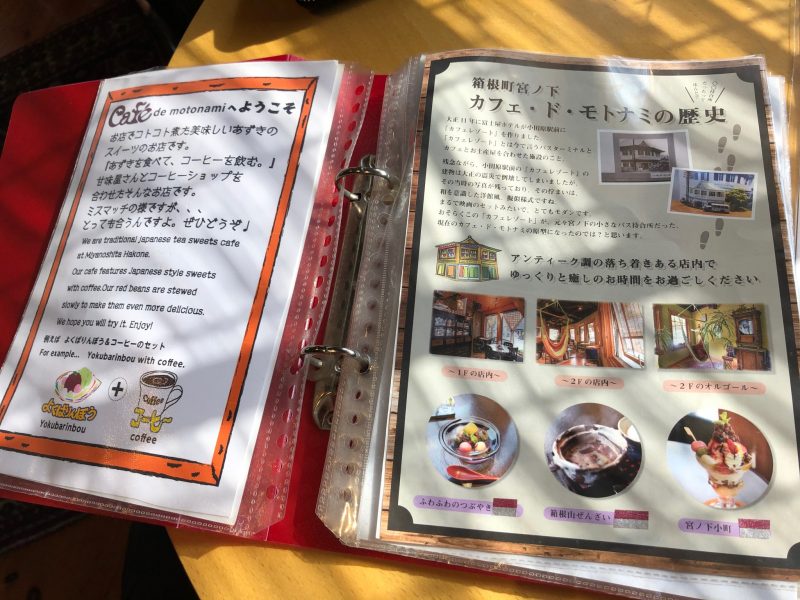 Café de motonamiへようこそ
お店でコトコト煮た美味しいあずきの
スイーツのお店です。
『あずきを食べて、コーヒーを飲む。』
甘味屋さんとコーヒーショップを
合わせたそんなお店です。
ミスマッチの様ですが、、、
とっても合うんですよ。ぜひどうぞ♪
We are traditional japanese tea sweets cafe
at Miyanoshita Hakone.
Our cafe features Japanese style sweets
with coffee.Our red beans are stewed
slowly to make them even more delicious.
We hope you will try it. Enjoy!
例えば よくばりんぼう&コーヒーのセット
For example... Yokubarinbou with coffee.
+
Coffee
よくばりんぼう
コーヒー
Yokubarinbou
coffee
箱根町宮ノ下
カフェ・ド・モトナミの歴史
大正11年に富士屋ホテルが小田原駅前に
『カフェレゾート』を作りました。
『カフェレゾート』とは今で言うバスターミナルと
カフェとお土産屋を合わせた施設のこと。
残念ながら、小田原駅前の『カフェレゾート』の
建物は大正の震災で倒壊してしまいましたが、
その当時の写真が残っており、その佇まいは、
和を意識した洋館風、擬似様式ですね。
まるで映画のセットみたいで、とてもモダンです。
おそらくこの『カフェレゾート』が、元々宮ノ下の小さなバス待合所だった、
現在のカフェ・ド・モトナミの原型になったのでは?と思います。
アンティーク調の落ち着きある店内で
ゆっくりと癒しのお時間をお過ごしください。
～1Fの店内～
～2Fの店内～
～2Fのオルゴール～
ふわふわのつぶやき
箱根山ぜんざい
宮ノ下小町